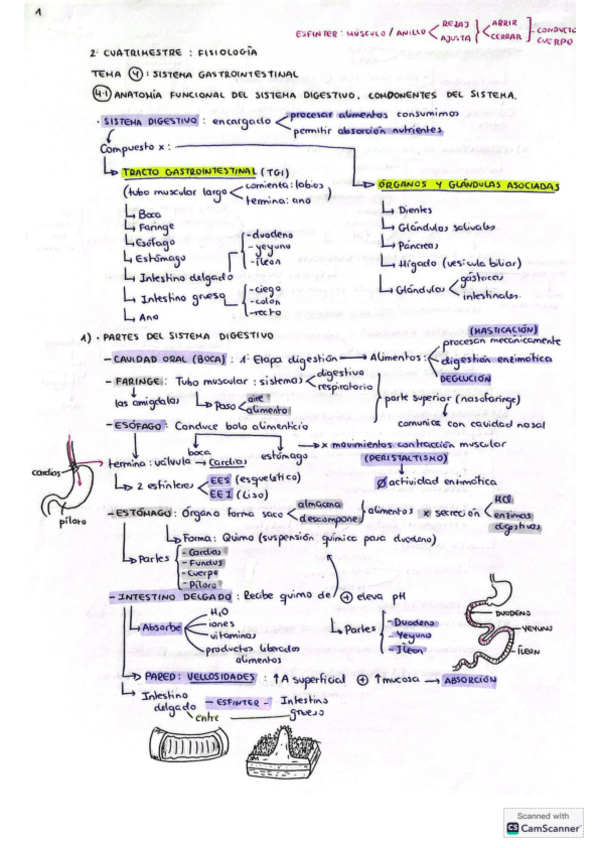 1
ESFINTER: MÚSCULO / ANILLO < RELAJ AJUSTA } < ABRIR CERRAR ] - CONDUCTO CUERPO
2º CUATRIMESTRE : FISIOLOGÍA
TEMA 4 : SISTEMA GASTROINTESTINAL
4.1 ANATOMÍA FUNCIONAL DEL SISTEMA DIGESTIVO. COMPONENTES DEL SISTEMA.
· SISTEMA DIGESTIVO : encargado < procesar alimentos consumimos
permitir absorción nutrientes
Compuesto x :
TRACTO GASTROINTESTINAL (TGI)
ÓRGANOS Y GLÁNDULAS ASOCIADAS
(tubo muscular largo < comienza: labios )
termina: ano
Boca
Faringe
Esófago
Estómago
Intestino delgado
- duodeno
- yeyuno
- íleon
Intestino grueso
- ciego
- colon
- recto
Ano
Dientes
Glándulas salivales
Páncreas
Hígado (vesícula biliar)
Glándulas < gástricas
intestinales.
1) · PARTES DEL SISTEMA DIGESTIVO
(MASTICACIÓN)
- CAVIDAD ORAL (BOCA) : 1ª Etapa digestión → Alimentos : < procesan mecánicamente
digestión enzimática
DEGLUCIÓN
- FARINGE : Tubo muscular : sistemas < digestivo
respiratorio
las amígdalas
Paso < aire
alimento
parte superior (nasofaringe)
comunica con cavidad nasal
- ESÓFAGO : Conduce bolo alimenticio
boca
estómago
x movimientos contracción muscular
(PERISTALTISMO)
Ø actividad enzimática
termina : válvula → Cardias
2 esfínteres < EES (esquelético)
EEI (liso)
cardias
píloro
- ESTÓMAGO : Órgano forma saco < almacena
descompone > alimentos x secreción < HCl
enzimas
digestivas
Forma : Quimo (suspensión química pasa duodeno)
Partes
- Cardias
- Fundus
- Cuerpo
- Píloro
- INTESTINO DELGADO : Recibe quimo de / + eleva pH
Absorbe
H₂O
iones
vitaminas
productos liberados
alimentos
Partes
- Duodeno
- Yeyuno
- Íleon
DUODENO
YEYUNO
ÍLEON
PARED : VELLOSIDADES : ↑ A superficial + ↑ mucosa → ABSORCIÓN
Intestino
delgado - ESFINTER - Intestino
grueso
entre
Scanned with
CS CamScanner